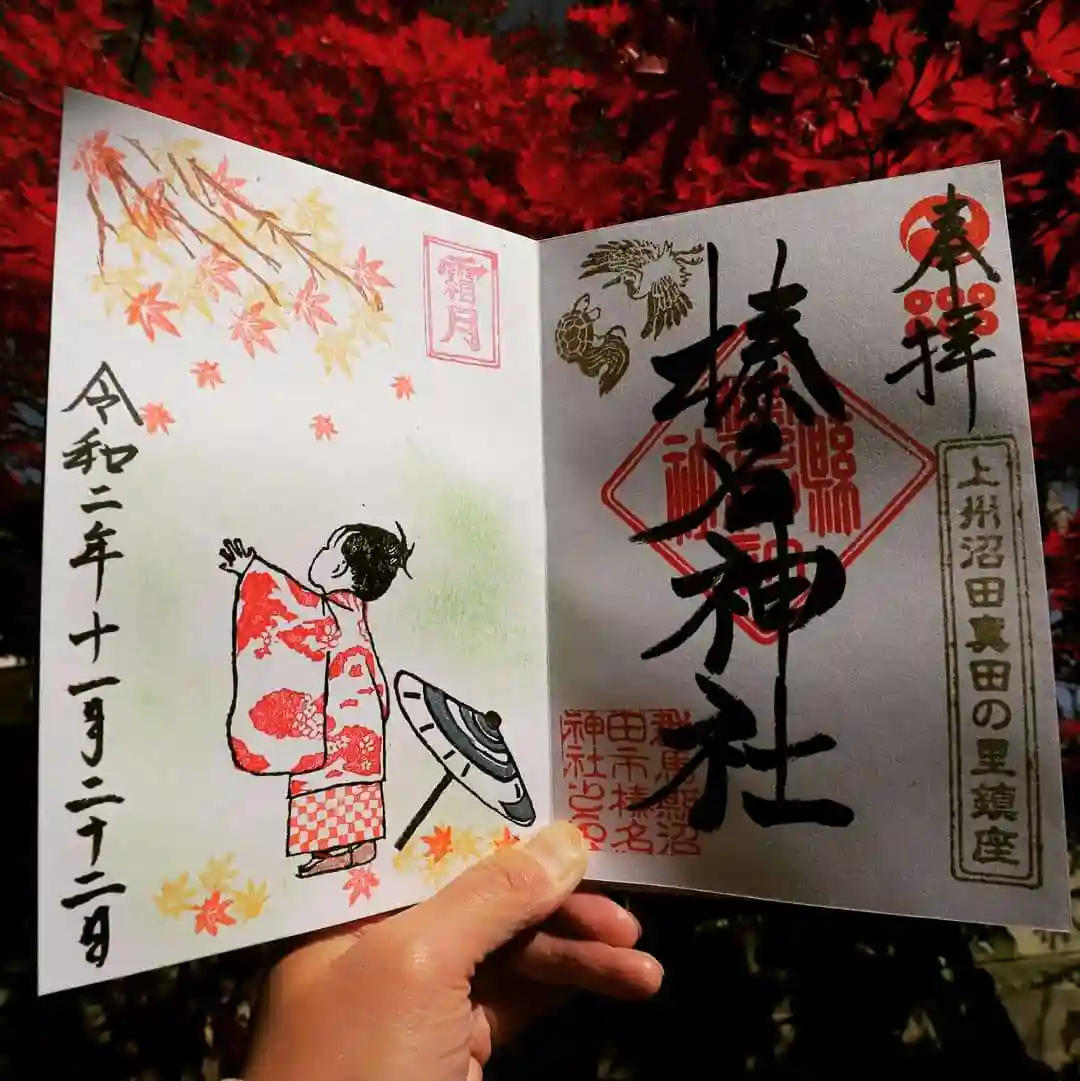 奉拝
上州沼田真田の里鎮座
榛名神社
群馬縣沼
田市榛名
神社之
霜月
令和二年十一月二十二日